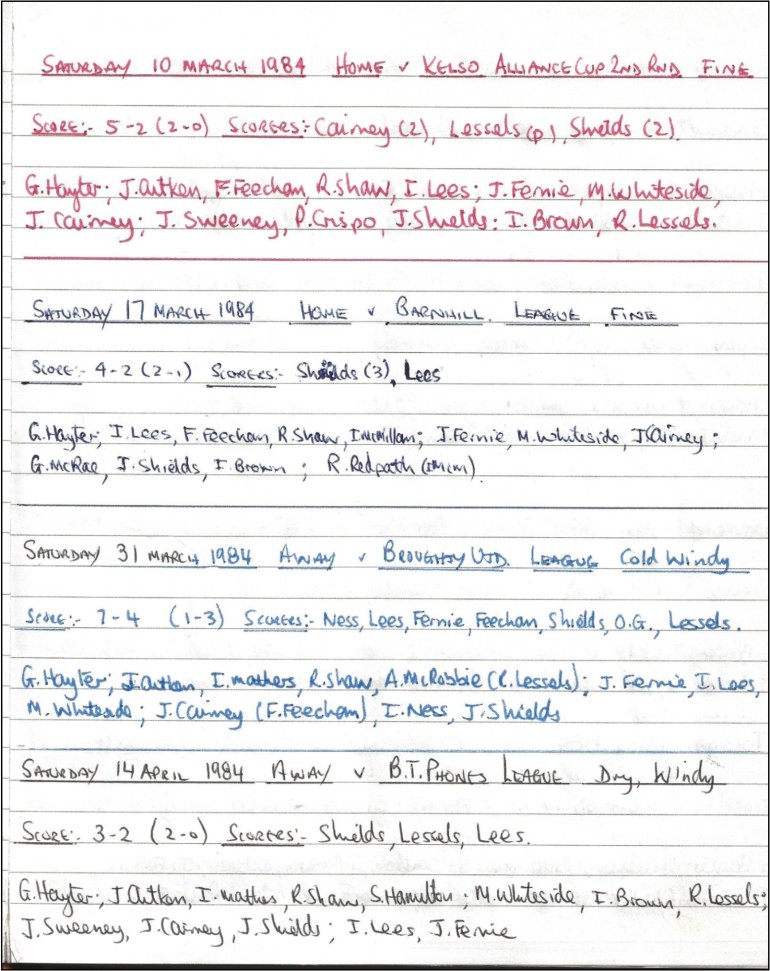 SATURDAY 10 MARCH 1984 HOME v KELSO ALLIANCE CUP 2ND RND FINE
SCORE:- 5-2 (2-0) SCORERS:- Cairney (2), Lessels (p), Shields (2).
G.Hayter; J.Aitken, F.Feechan, R.Shaw, I.Lees; J.Fernie, M.Whiteside,
J.Cairney; J.Sweeney, P.Crispo, J.Shields: I.Brown, R.Lessels.
SATURDAY 17 MARCH 1984 HOME v BARNHILL. LEAGUE FINE
SCORE:- 4-2 (2-1) SCORERS:- Shields (3), Lees
G.Hayter; I.Lees, F.Feechan, R.Shaw, I.McMillan; J.Fernie, M.Whiteside, J.Cairney;
G.McRae, J.Shields, I.Brown; R.Redpath (IMcM)
SATURDAY 31 MARCH 1984 AWAY v BROUGHTY UTD. LEAGUE Cold Windy
SCORE:- 7-4 (1-3) SCORERS:- Ness, Lees, Fernie, Feechan, Shields, O.G., Lessels.
G.Hayter; J.Aitken, I.Mathers, R.Shaw, A.McRobbie (R.Lessels); J.Fernie, I.Lees,
M.Whiteside; J.Cairney (F.Feechan), I.Ness, J.Shields
SATURDAY 14 APRIL 1984 AWAY v B.T. PHONES LEAGUE Dry, Windy
SCORE:- 3-2 (2-0) SCORERS:- Shields, Lessels, Lees.
G.Hayter; J.Aitken, I.Mathers, R.Shaw, S.Hamilton; M.Whiteside, I.Brown, R.Lessels;
J.Sweeney, J.Cairney, J.Shields; I.Lees, J.Fernie